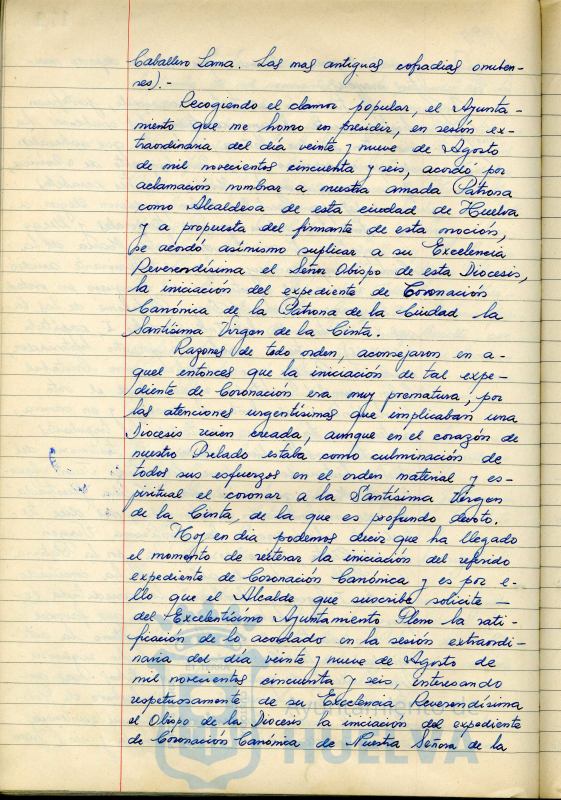 Caballero Lama. Las mas antiguas cofradias onuben-
ses).-
Recogiendo el clamor popular, el Ayunta-
miento que me honro en presidir, en sesión ex-
traordinaria del día veinte y nueve de Agosto
de mil novecientos cincuenta y seis, acordó por
aclamación nombrar a nuestra amada Patrona
como Alcaldesa de esta ciudad de Huelva
y a propuesta del firmante de esta moción,
se acordó asimismo suplicar a su Excelencia
Reverendísima el Señor Obispo de esta Diocesis,
la iniciación del expediente de Coronación
Canónica de la Patrona de la Ciudad la
Santísima Virgen de la Cinta.
Razones de todo orden, aconsejaron en a-
quel entonces que la iniciación de tal expe-
diente de Coronación era muy prematura, por
las atenciones urgentísimas que implicaban una
Diocesis recien creada, aunque en el corazón de
nuestro Prelado estaba como culminación de
todos sus esfuerzos en el orden material y es-
piritual el coronar a la Santísima Virgen
de la Cinta, de la que es profundo devoto.
Hoy en día podemos decir que ha llegado
el momento de reiterar la iniciación del referido
expediente de Coronación Canónica y es por e-
llo que el Alcalde que suscribe solicite -
del Excelentísimo Ayuntamiento Pleno la rati-
ficación de lo acordado en la sesión extraordi-
naria del día veinte y nueve de Agosto de
mil novecientos cincuenta y seis, interesando
respetuosamente de su Excelencia Reverendísima
el Obispo de la Diocesis la iniciación del expediente
de Coronación Canónica de Nuestra Señora de la
HUELVA